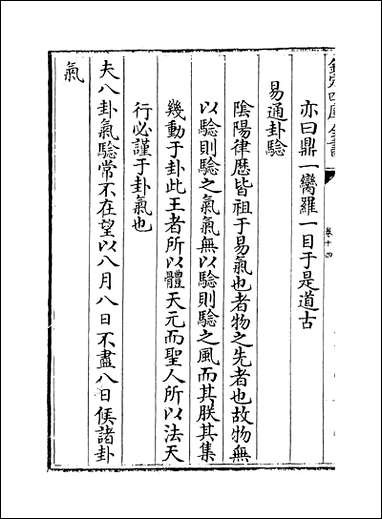 欽定四庫全書
卷十四
亦曰鼎一臠羅一目于是道古
易通卦驗
陰陽律歷皆祖于易氣也者物之先者也故物無
以驗則驗之氣氣無以驗則驗之風而其朕其集
幾動于卦此王者所以體天元而聖人所以法天
行必謹于卦氣也
夫八卦氣驗常不在望以八月八日不盡八日候諸卦
氣